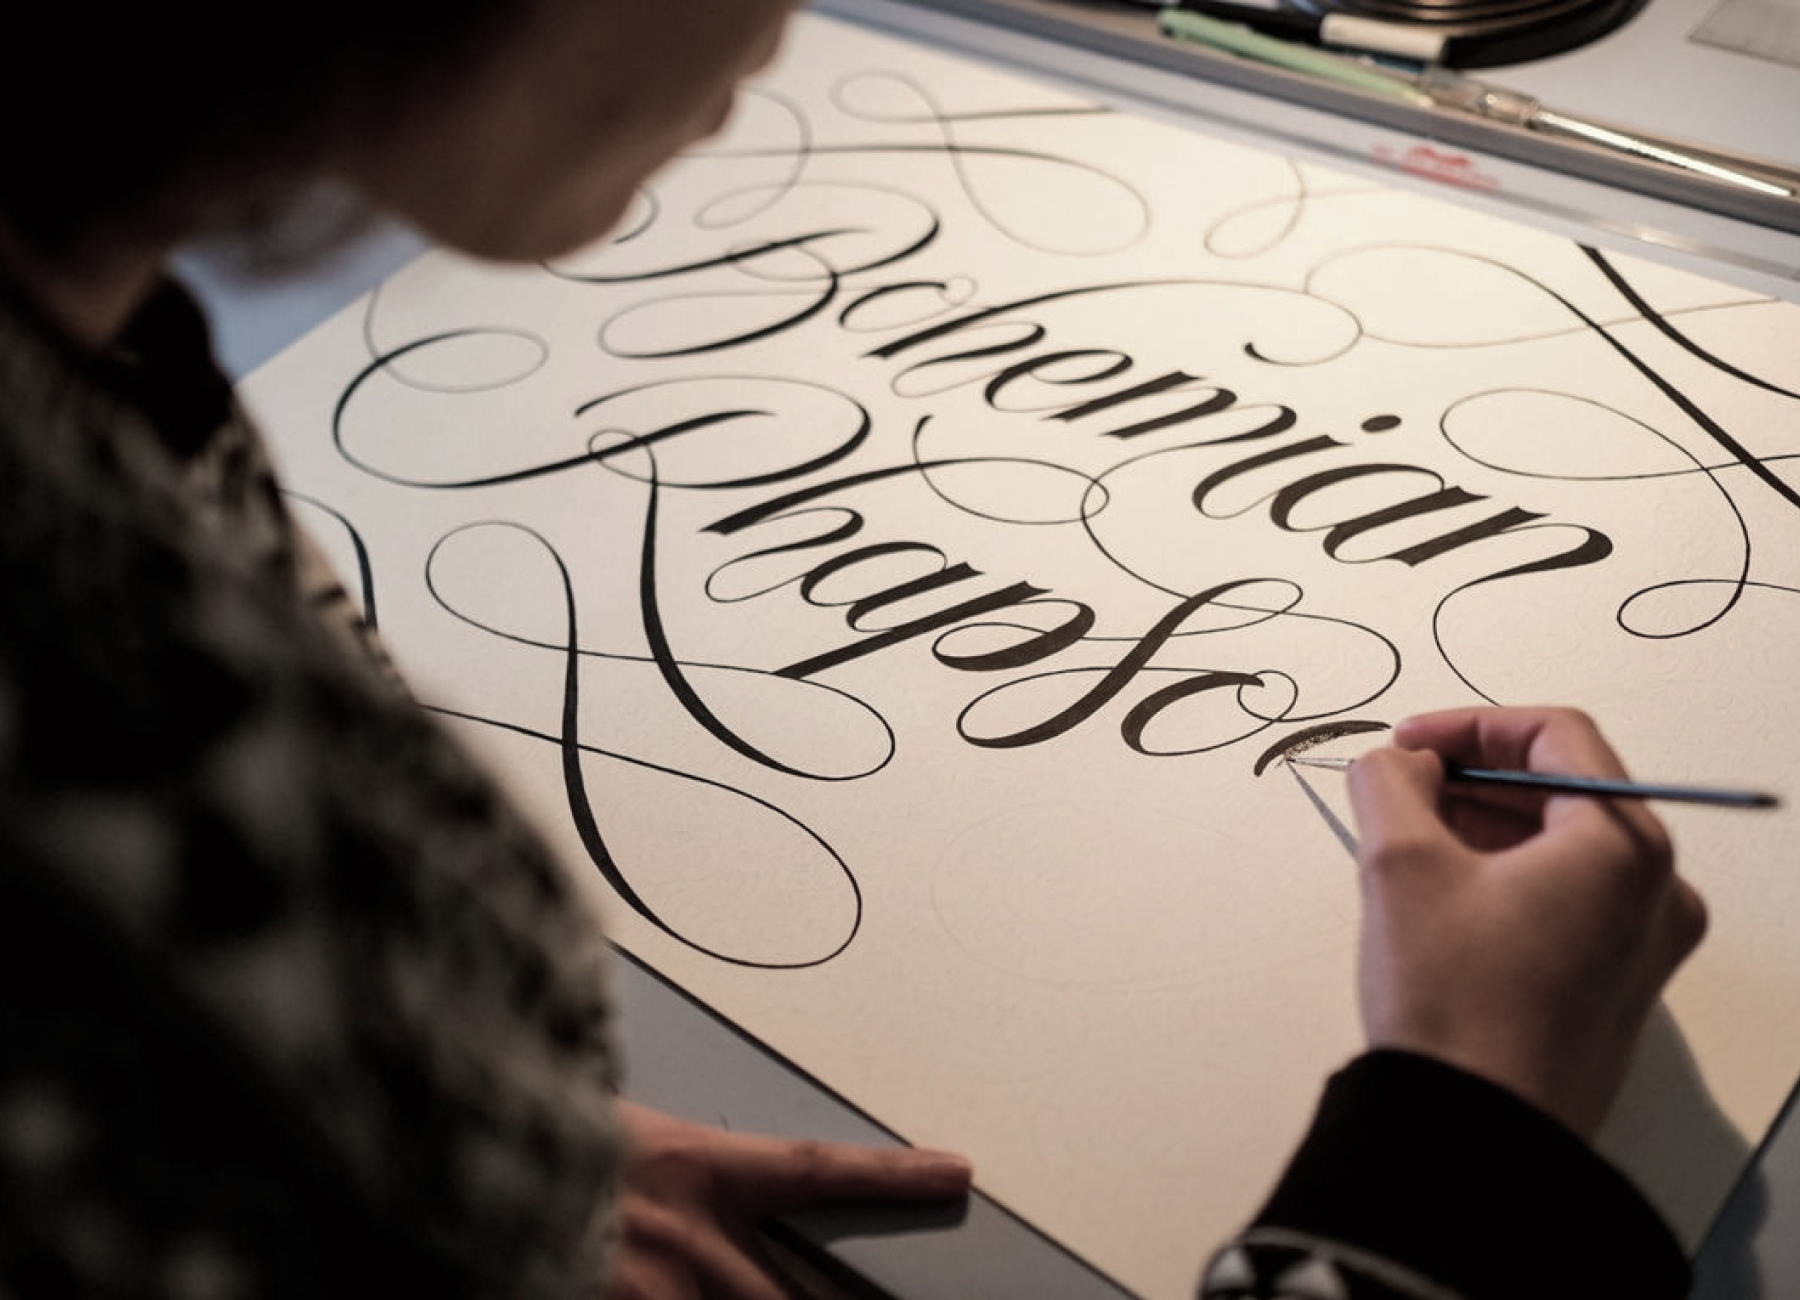 Bohemian
Rhapso